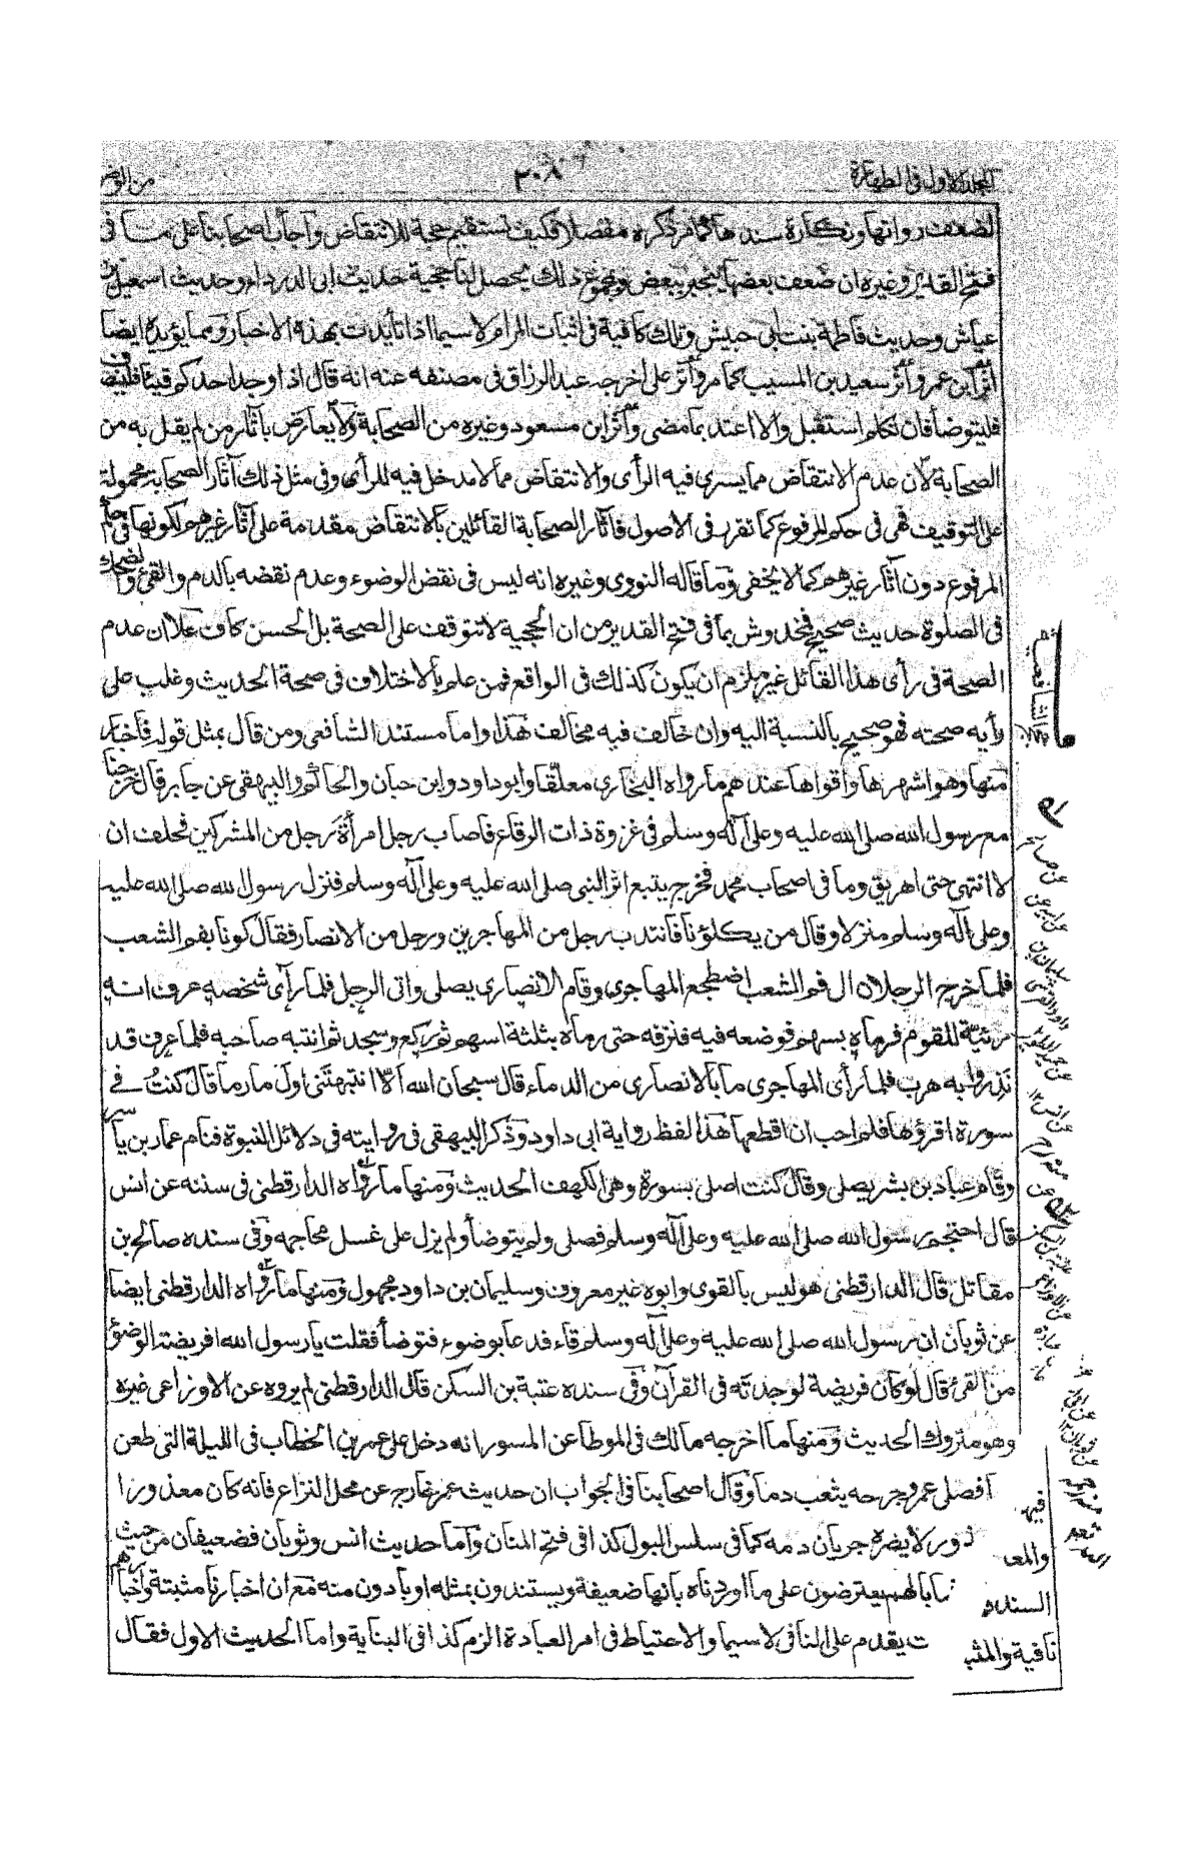 المجلد الاول فی الطهارة
٣٠٨
من الوض
لضعف رواتها ونكارة سندها كما مر ذكره مفصلا فكيف تستقيم حجة للانتقاض واجاب اصحابنا على ما فی
فتح القدير وغيره ان ضعف بعضها ينجبر ببعض وبمجموع ذلك يحصل لنا حجية حديث ابی الدرداء وحديث اسمعيل بن
عياش وحديث فاطمة بنت ابی حبيش وتلك كافية فی اثبات المرام لا سيما اذا تأيدت بهذه الاخبار ومما يؤيده ايضا
اثر ابن عمر واثر سعيد بن المسيب كما مر واثر علی اخرجه عبد الرزاق فی مصنفه عنه انه قال اذا وجد احدكم قيئا فلينصرف
فليتوضأ فان تكلم استقبل والا اعتد بما مضی واثر ابن مسعود وغيره من الصحابة ولا يعارض بآثار من لم يقل به من
الصحابة لان عدم الانتقاض مما يسری فيه الرأی والانتقاض مما لا مدخل فيه للرأی وفی مثل ذلك آثار الصحابة محمولة
علی التوقيف فهی فی حكم المرفوع كما تقرر فی الاصول فآثار الصحابة القائلين بالانتقاض مقدمة علی آثار غيرهم لكونها فی حكم
المرفوع دون آثار غيرهم كما لا يخفی وما قاله النووی وغيره انه ليس فی نقض الوضوء وعدم نقضه بالدم والقیء والضحك
فی الصلوة حديث صحيح فمخدوش بما فی فتح القدير من ان الحجية لا تتوقف علی الصحة بل الحسن كاف علا ان عدم
الصحة فی رأی هذا القائل غير ملزم ان يكون كذلك فی الواقع فمن علم بالاختلاف فی صحة الحديث وغلب علی
رأيه صحته فهو صحيح بالنسبة اليه وان خالف فيه مخالف هذا واما مستند الشافعی ومن قال بمثل قوله فاخبار
منها وهو اشهرها واقواها عندهم ما رواه البخاری معلقا وابو داود وابن حبان والحاكم والبيهقی عن جابر قال خرجنا
مع رسول الله صلی الله عليه وعلی آله وسلم فی غزوة ذات الرقاع فاصاب رجل امرأة رجل من المشركين فحلف ان
لا انتهی حتی اهريق دما فی اصحاب محمد فخرج يتبع اثر النبی صلی الله عليه وعلی آله وسلم فنزل رسول الله صلی الله عليه
وعلی آله وسلم منزلا وقال من يكلؤنا فانتدب رجل من المهاجرين ورجل من الانصار فقال كونا بفم الشعب
فلما خرج الرجلان الی فم الشعب اضطجع المهاجری وقام الانصاری يصلی واتی الرجل فلما رأی شخصه عرف انه
ربيئة للقوم فرماه بسهم فوضعه فيه فنزفه حتی رماه بثلثة اسهم ثم ركع وسجد ثم انتبه صاحبه فلما عرف قد
نذروا به هرب فلما رأی المهاجری ما بالانصاری من الدماء قال سبحان الله الا انتبهتنی اول ما رما قال كنت فی
سورة اقرؤها فلم احب ان اقطعها هذا لفظ رواية ابی داود وذكر البيهقی فی روايته فی دلائل النبوة فنام عمار بن ياسر
وقام عباد بن بشر يصلی وقال كنت اصلی بسورة وهی الكهف الحديث ومنها ما رواه الدارقطنی فی سننه عن انس
قال احتجم رسول الله صلی الله عليه وعلی آله وسلم فصلی ولم يتوضأ ولم يزل علی غسل محاجمه وفی سنده صالح بن
مقاتل قال الدارقطنی هو ليس بالقوی وابوه غير معروف وسليمان بن داود مجهول ومنها ما رواه الدارقطنی ايضا
عن ثوبان ان رسول الله صلی الله عليه وعلی آله وسلم قاء فدعا بوضوء فتوضأ فقلت يا رسول الله افريضة الوضوء
من القیء قال لو كان فريضة لوجدته فی القرآن وفی سنده عتبة بن السكن قال الدارقطنی لم يروه عن الاوزاعی غيره
وهو متروك الحديث ومنها ما اخرجه مالك فی الموطا عن المسور انه دخل علی عمر بن الخطاب فی الليلة التی طعن
فيها فصلی عمر وجرحه يثعب دما وقال اصحابنا فی الجواب ان حديث عمر خارج عن محل النزاع فانه كان معذورا
والمعذور لا يضره جريان دمه كما فی سلس البول كذا فی فتح المنان واما حديث انس وثوبان فضعيفان من حيث
السند ما بالهم يعترضون علی ما اوردناه بانها ضعيفة ويستندون بمثله او بادون منه مع ان اخبارنا مثبتة واخبارهم
نافية والمثبت يقدم علی النافی لا سيما والاحتياط فی امر العبادة الزم كذا فی البناية واما الحديث الاول فقال